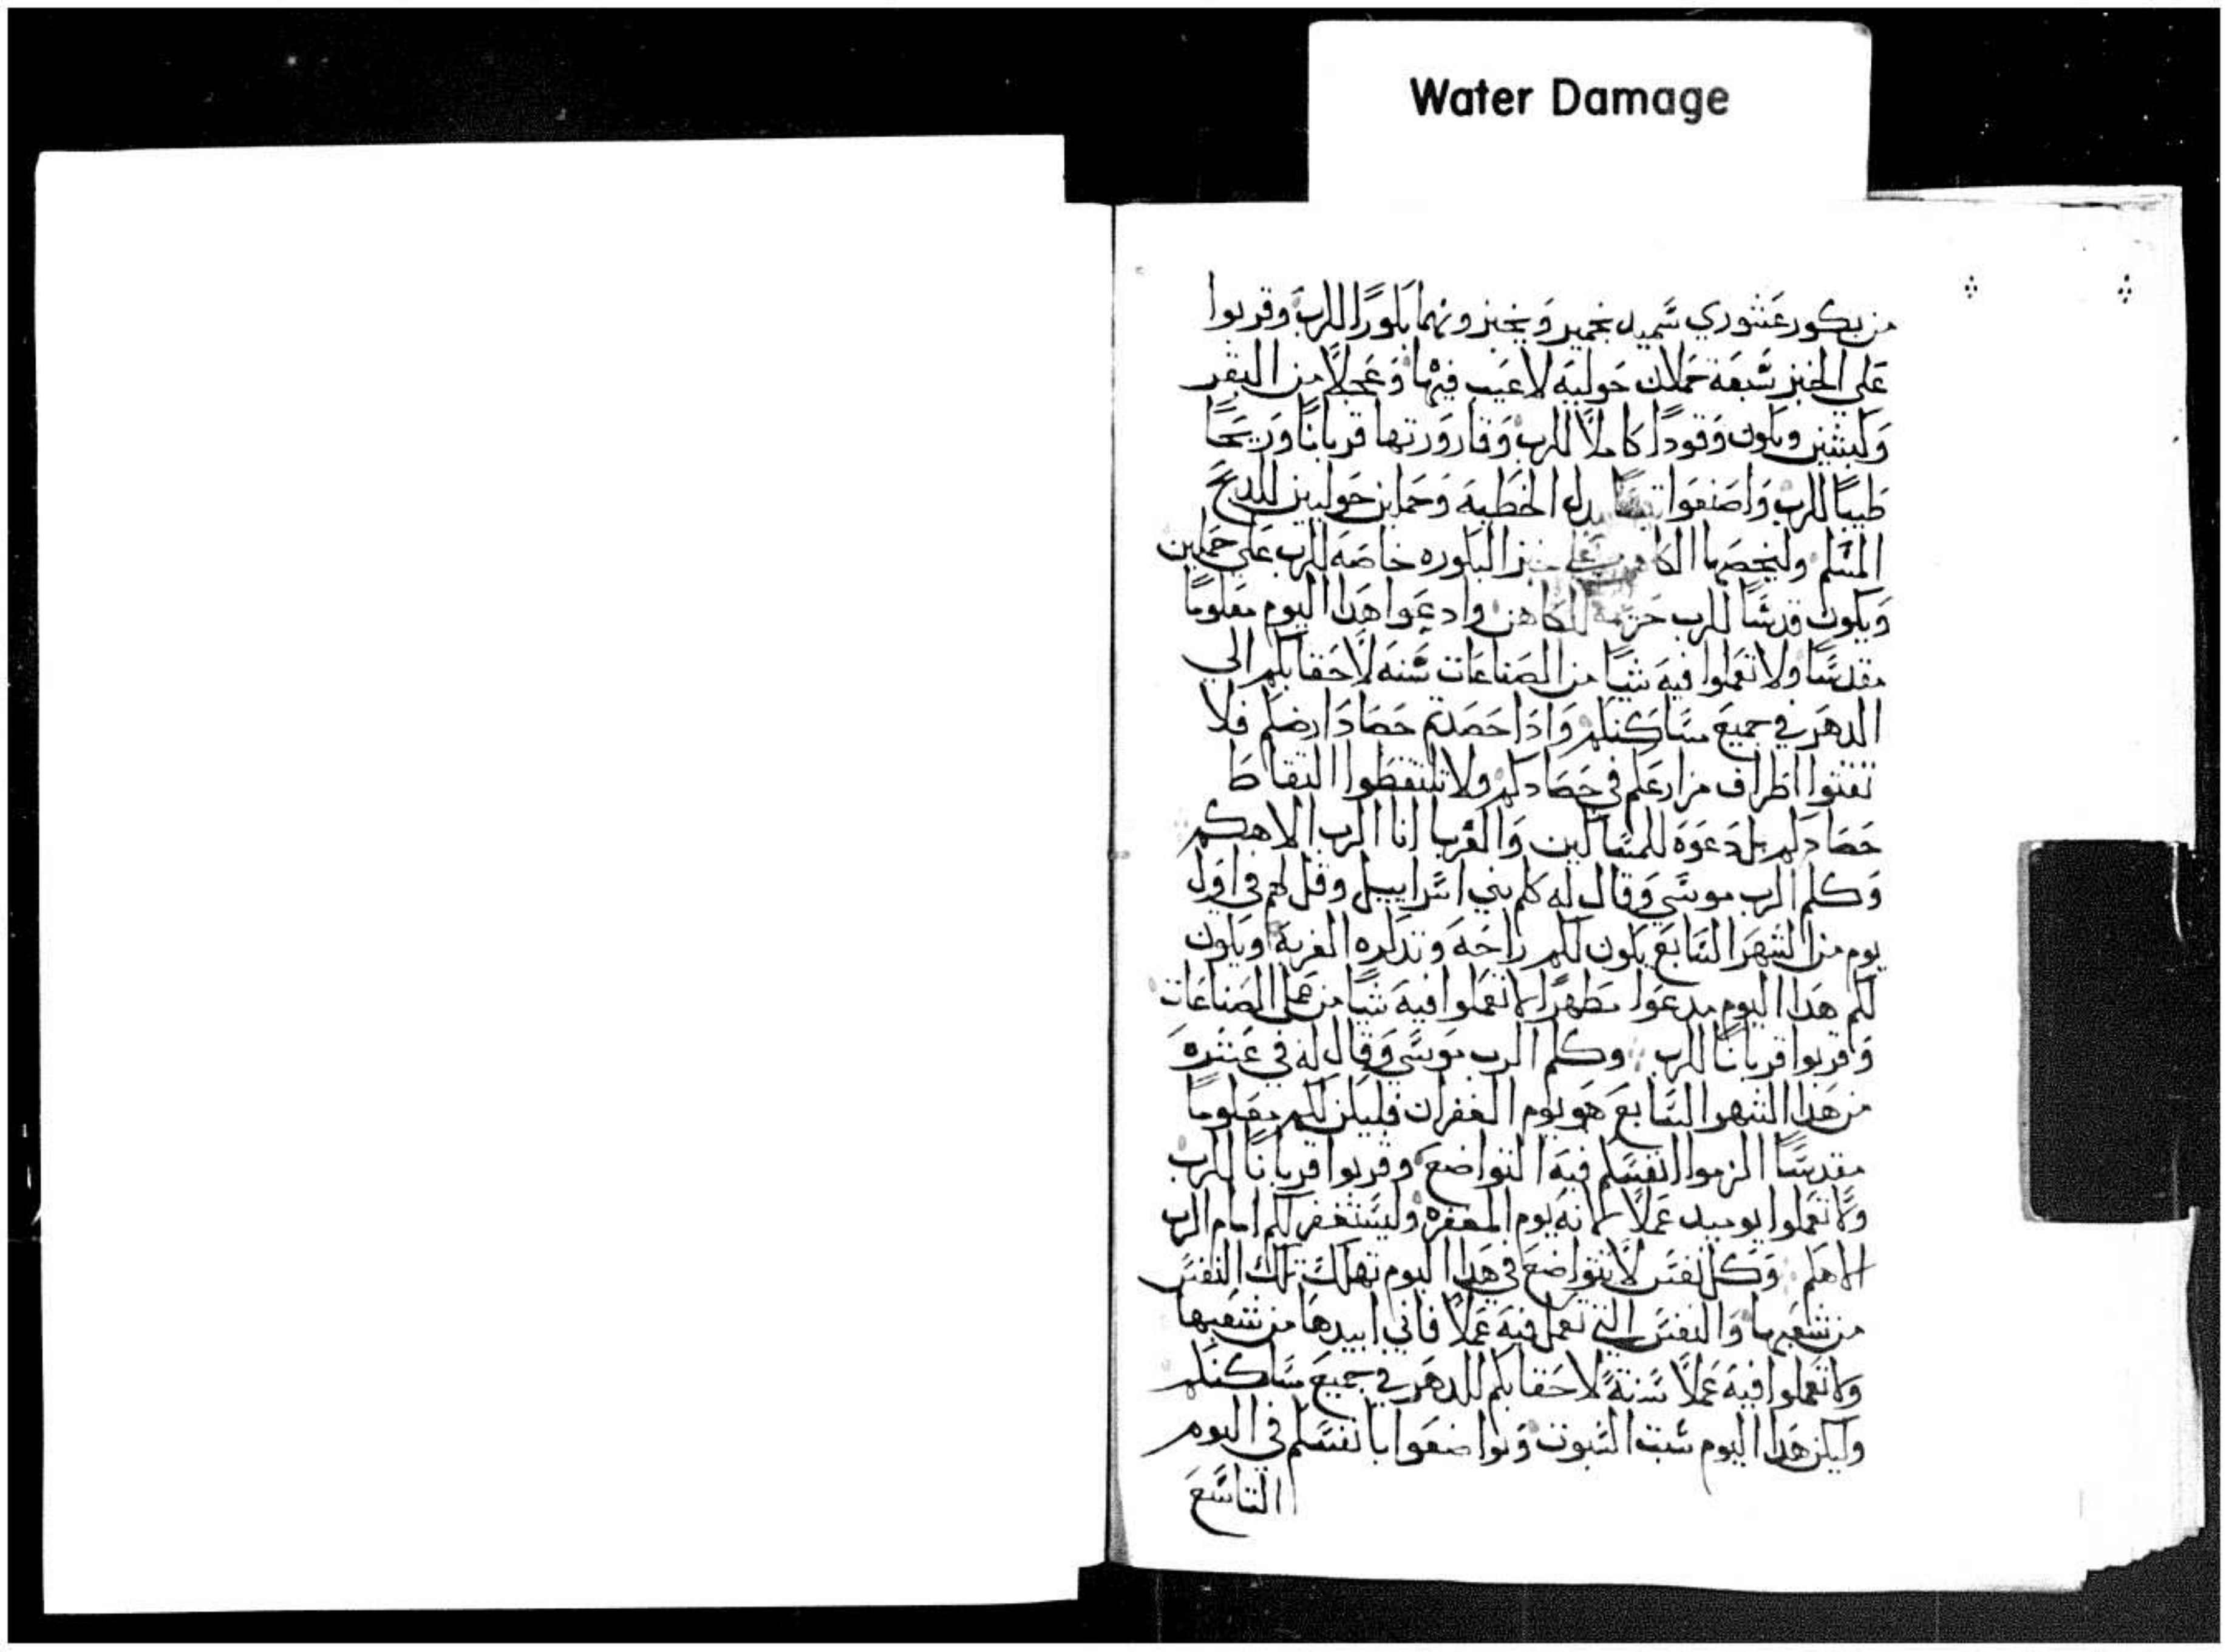 Water Damage
من بكور عشوري سميد بخمير وبخبزونهما بكورًا للرب وقربوا
على الخبز سبعة حملان حوليه لا عيب فيها وعجلًا من البقر
وكبشين ويكون وقودًا كاملًا للرب وقارورتها قربانًا وريحًا
طيبًا للرب واصنعوا تيسًا بدل الخطيه وحملين حوليين للدبح
المسلم وليخصها الكاهن على خبز البكوره خاصه للرب على حملين
ويكون قدسًا للرب حزمة للكاهن وادعوا هدا اليوم معلومًا
مقدسًا ولا تعملوا فيه شيًا من الصناعات سنه لاحقابكم الي
الدهر في جميع مساكنكم وادا حصدتم حصاد ارضكم فلا
تفتوا اطراف مزارعكم في حصادكم ولا تلتقطوا التقاط
حصادكم بل دعوه للمساكين والغربا انا الرب الاهكم
وكلم الرب موسي وقال له كلم بني اسراييل وقل لهم في اول
يوم من الشهر السابع يكون لكم راحه وتدكره الغربة ويكون
لكم هدا اليوم مدعوا مطهرًا لا تعملوا فيه شيًا من عمل الصناعات
وقربوا قربانًا للرب وكلم الرب موسي وقال له في عشره
من هدا الشهر السابع هو يوم الغفران فليكن لكم معلومًا
مقدسًا الزموا انفسكم فيه التواضع وقربوا قربانًا للرب
ولا تعملوا يوميد عملًا لانه يوم المغفره وليستغفر لكم امام الرب
الاهكم وكل نفس لا يتواضع في هدا اليوم تهلك تلك النفس
من شعبها والنفس التي تعمل فيه عملًا فاني ابيدها من شعبها
ولا تعملوا فيه عملًا سنةً لاحقابكم للدهر في جميع مساكنكم
وليكن هدا اليوم سبت السبوت وتواضعوا بانفسكم في اليوم
التاسع